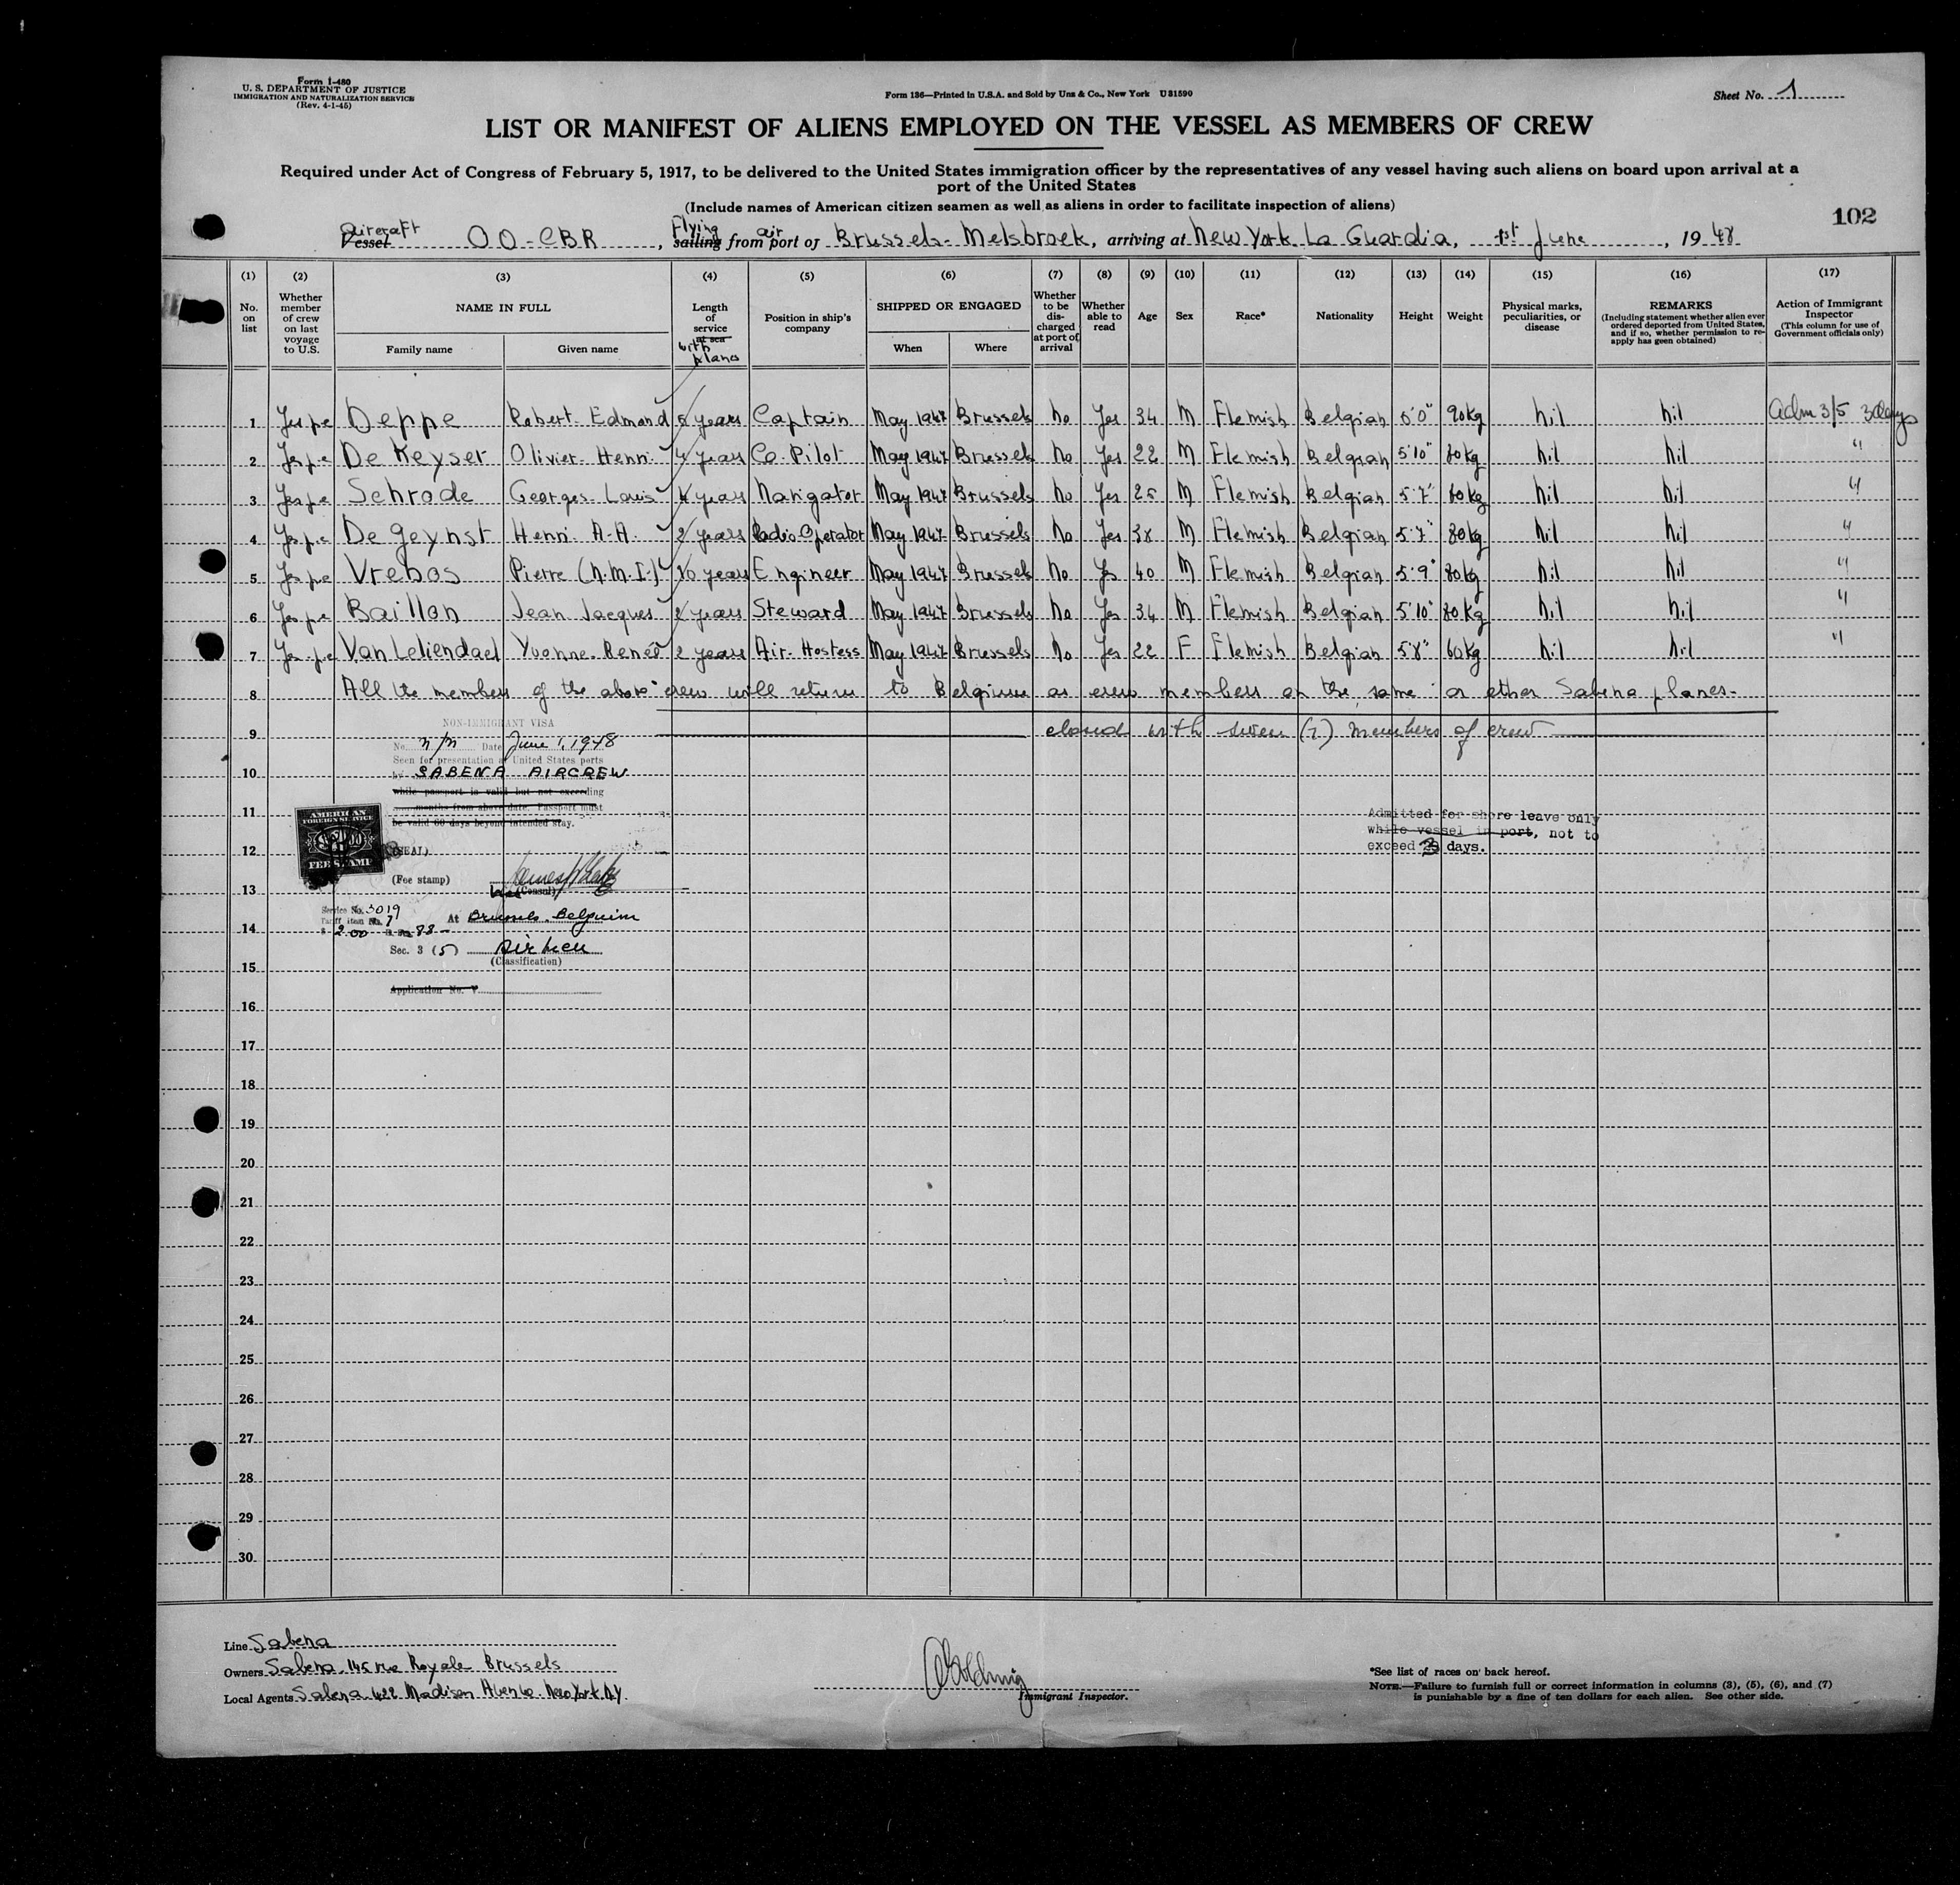 Form I-480
U. S. DEPARTMENT OF JUSTICE
IMMIGRATION AND NATURALIZATION SERVICE
(Rev. 4-1-45)
Form 136—Printed in U.S.A. and Sold by Unz & Co., New York U81590
Sheet No. 1
LIST OR MANIFEST OF ALIENS EMPLOYED ON THE VESSEL AS MEMBERS OF CREW
Required under Act of Congress of February 5, 1917, to be delivered to the United States immigration officer by the representatives of any vessel having such aliens on board upon arrival at a
port of the United States
(Include names of American citizen seamen as well as aliens in order to facilitate inspection of aliens)
102
Aircraft Flying air
Vessel OO-CBR, sailing from port of Brussels-Melsbroek, arriving at New York La Guardia, 1st June, 1948
(1) (2) (3) (4) (5) (6) (7) (8) (9) (10) (11) (12) (13) (14) (15) (16) (17)
No. on list
Whether member of crew on last voyage to U.S.
NAME IN FULL
Family name Given name
Length of service at sea
with planes
Position in ship's company
SHIPPED OR ENGAGED
When Where
Whether to be discharged at port of arrival
Whether able to read
Age
Sex
Race*
Nationality
Height
Weight
Physical marks, peculiarities, or disease
REMARKS
(Including statement whether alien ever ordered deported from United States, and if so, whether permission to re-apply has geen obtained)
Action of Immigrant Inspector
(This column for use of Government officials only)
1 Yes p.e Deppe Robert Edmond years Captain May 1947 Brussels No Yes 34 M Flemish Belgian 90kg nil nil Adm 3/5 3 days
2 Yes p.e De Keyser Olivier Henri years Co. Pilot May 1947 Brussels No Yes 22 M Flemish Belgian 5'10" 80kg nil nil "
3 Yes p.e Schrode Georges Louis years Navigator May 1947 Brussels No Yes 25 M Flemish Belgian 5'7" 60kg nil nil "
4 Yes p.e De Geynst Henri A.A. 2 years Radio Operator May 1947 Brussels No Yes 38 M Flemish Belgian 5'7" 80kg nil nil "
5 Yes p.e Vrebos Pierre (N.M.I.) 10 years Engineer May 1947 Brussels No Yes 40 M Flemish Belgian 5'9" 80kg nil nil "
6 Yes p.e Baillon Jean Jacques 2 years Steward May 1947 Brussels No Yes 34 M Flemish Belgian 5'10" 80kg nil nil "
7 Yes p.e Van Leliendael Yvonne Reneé 2 years Air-Hostess May 1947 Brussels No Yes 22 F Flemish Belgian 5'8" 60kg nil nil "
8 All the members of the above crew will return to Belgium as crew members on the same or other Sabena planes.
9 closed with seven (7) members of crew
NON-IMMIGRANT VISA
No. n/n Date June 1, 1948
Seen for presentation at United States ports
by SABENA AIRCREW
while passport is valid but not exceeding
months from above date. Passport must
be valid 60 days beyond intended stay.
AMERICAN
FOREIGN SERVICE
FEE STAMP
(SEAL)
(Fee stamp)
(Consul)
Service No. 3019
Tariff item No. 7
$ 2.00 88-
At Brussels-Belguim
Sec. 3 (5) Airmen
(Classification)
Application No. V
Admitted for shore leave only
while vessel in port, not to
exceed 3 days.
10
11
12
13
14
15
16
17
18
19
20
21
22
23
24
25
26
27
28
29
30
Line Sabena
Owners Sabena. 145 rue Royale Brussels
Local Agents Sabena 422 Madison Avenue New York N.Y.
Immigrant Inspector.
*See list of races on back hereof.
NOTE.—Failure to furnish full or correct information in columns (3), (5), (6), and (7)
is punishable by a fine of ten dollars for each alien. See other side.